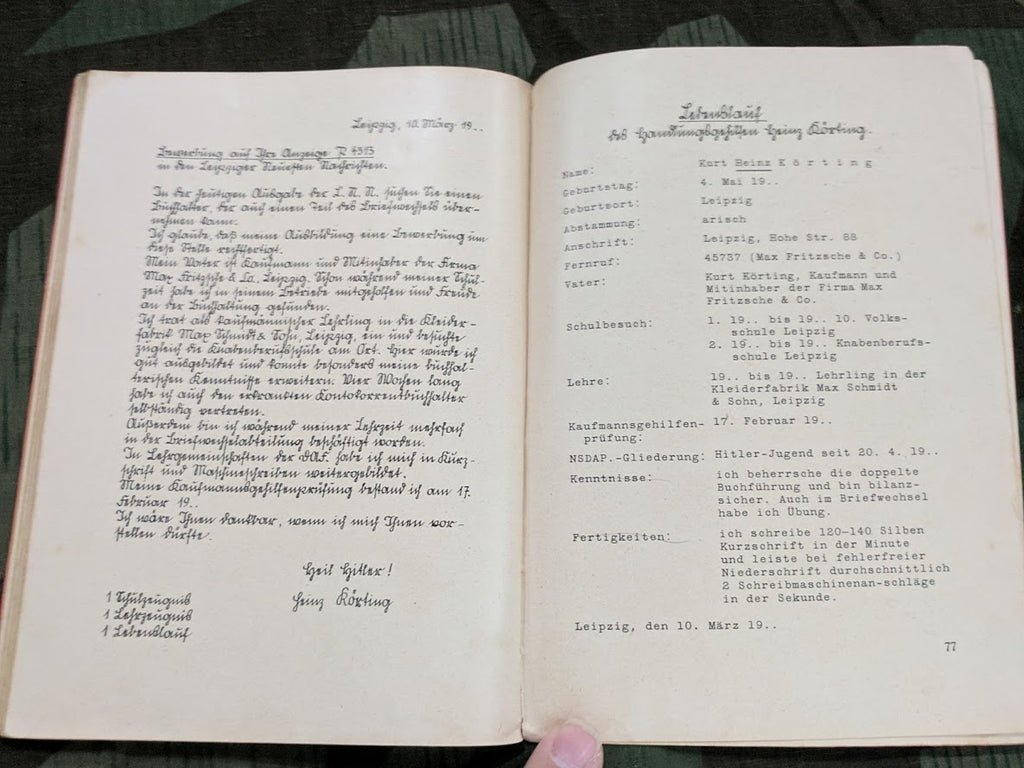 Leipzig, 10. März 19..
Bewerbung auf Ihre Anzeige R 4313
in den Leipziger Neuesten Nachrichten.
In der heutigen Ausgabe der L. N. N. suchen Sie einen
Buchhalter, der auch einen Teil des Briefwechsels über-
nehmen kann.
Ich glaube, daß meine Ausbildung eine Bewerbung um
diese Stelle rechtfertigt.
Mein Vater ist Kaufmann und Mitinhaber der Firma
Max Fritzsche & Co., Leipzig. Schon während meiner Schul-
zeit habe ich in seinem Betriebe mitgeholfen und Freude
an der Buchhaltung gefunden.
Ich trat als kaufmännischer Lehrling in die Kleider-
fabrik Max Schmidt & Sohn, Leipzig, ein und besuchte
zugleich die Knabenberufsschule am Ort. Hier wurde ich
gut ausgebildet und konnte besonders meine buchhal-
terischen Kenntnisse erweitern. Vier Wochen lang
habe ich auch den erkrankten Kontokorrentbuchhalter
selbständig vertreten.
Außerdem bin ich während meiner Lehrzeit mehrfach
in der Briefwechselabteilung beschäftigt worden.
In Lehrgemeinschaften der DAF. habe ich mich in Kurz-
schrift und Maschineschreiben weitergebildet.
Meine Kaufmannsgehilfenprüfung bestand ich am 17.
Februar 19..
Ich wäre Ihnen dankbar, wenn ich mich Ihnen vor-
stellen dürfte.
Heil Hitler!
Heinz Körting
1 Schulzeugnis
1 Lehrzeugnis
1 Lebenslauf
Lebenslauf
des Handlungsgehilfen Heinz Körting.
Name: Kurt Heinz Körting
Geburtstag: 4. Mai 19..
Geburtsort: Leipzig
Abstammung: arisch
Anschrift: Leipzig, Hohe Str. 88
Fernruf: 45737 (Max Fritzsche & Co.)
Vater: Kurt Körting, Kaufmann und
Mitinhaber der Firma Max
Fritzsche & Co.
Schulbesuch: 1. 19.. bis 19.. 10. Volks-
schule Leipzig
2. 19.. bis 19.. Knabenberufs-
schule Leipzig
Lehre: 19.. bis 19.. Lehrling in der
Kleiderfabrik Max Schmidt
& Sohn, Leipzig
Kaufmannsgehilfen- 17. Februar 19..
prüfung:
NSDAP.-Gliederung: Hitler-Jugend seit 20. 4. 19..
Kenntnisse: ich beherrsche die doppelte
Buchführung und bin bilanz-
sicher. Auch im Briefwechsel
habe ich Übung.
Fertigkeiten: ich schreibe 120-140 Silben
Kurzschrift in der Minute
und leiste bei fehlerfreier
Niederschrift durchschnittlich
2 Schreibmaschinenan-schläge
in der Sekunde.
Leipzig, den 10. März 19..
77